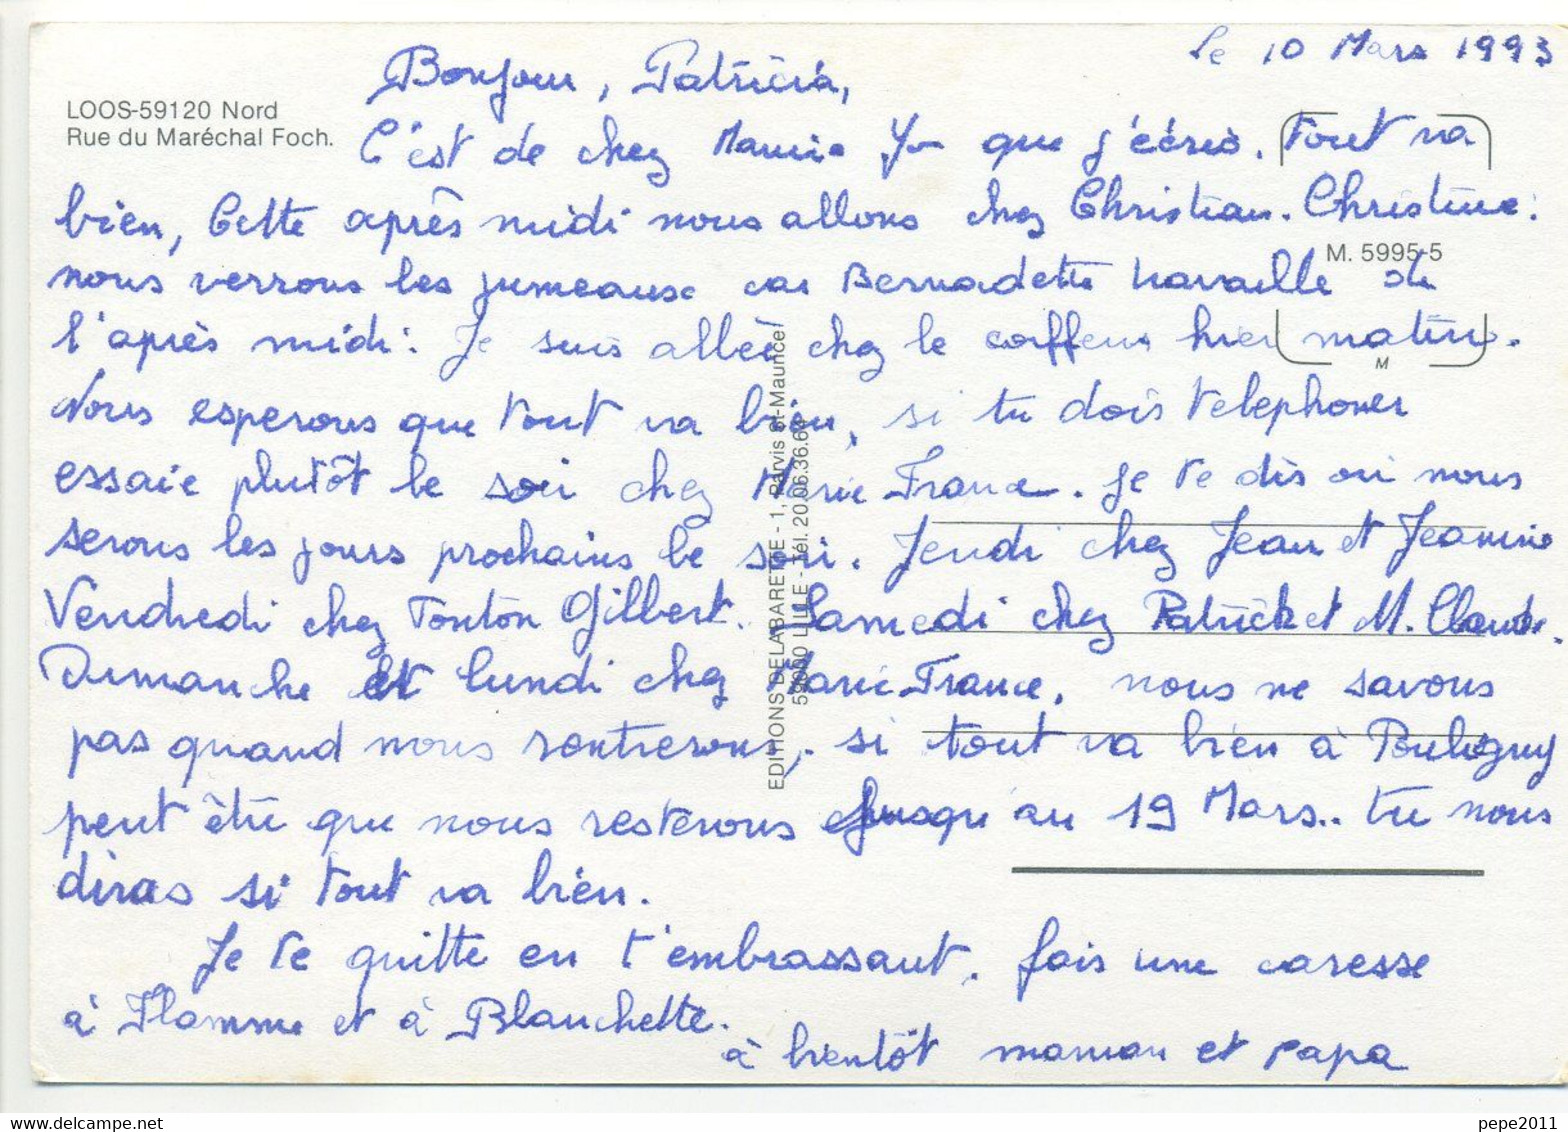 Le 10 Mars 1993
Bonjour, Patricia,
LOOS-59120 Nord
Rue du Maréchal Foch.
C'est de chez Mamie que j'écris. Tout va
bien, Cette après midi nous allons chez Christian. Christine.
M. 5995-5
nous verrons les jumeaux car Bernadette travaille de
l'après midi. Je suis allée chez le coiffeur hier matin.
M
Nous esperons que tout va bien, si tu dois telephoner
essaie plutôt le soir chez Marie France. Je te dis où nous
serons les jours prochains le soir. Jeudi chez Jean et Jeanine
Vendredi chez Tonton Gilbert. Samedi chez Patrick et M. Claude.
Dimanche et lundi chez Marie-France, nous ne savons
pas quand nous rentrerons, si tout va bien à Pouligny
peut être que nous resterons jusqu'au 19 Mars.. tu nous
diras si tout va bien.
Je te quitte en t'embrassant. fais une caresse
à Flamme et à Blanchette.
à bientôt maman et papa
EDITIONS DELABARETTE - 1, Parvis St-Maurice
59000 LILLE - Tél. 20.06.36.6
pepe2011